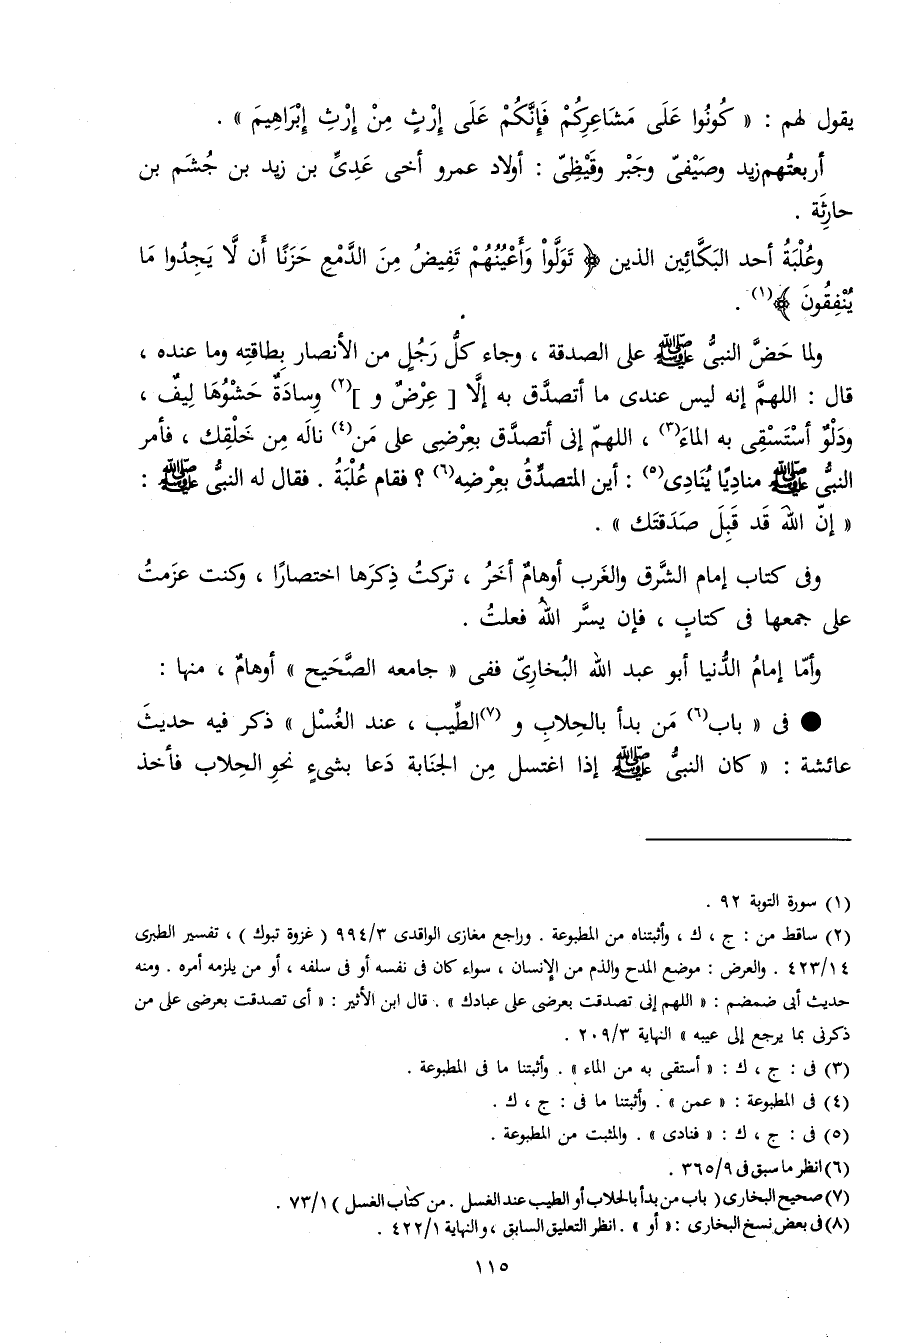 يقول لهم : « كُونُوا عَلَى مَشَاعِرِكُمْ فَإِنَّكُمْ عَلَى إِرْثٍ مِنْ إِرْثِ إِبْرَاهِيمَ » .
أربعتُهم زيد وصَيْفىّ وجَبْر وقَيْظِىّ : أولاد عمرو أخى عَدِىِّ بن زيد بن جُشَم بن
حارِثَة .
وعُلْبَةُ أحد البَكَّائِين الذين ﴿ تَوَلَّواْ وَأَعْيُنُهُمْ تَفِيضُ مِنَ الدَّمْعِ حَزَنًا أَن لَّا يَجِدُوا مَا
يُنْفِقُونَ ﴾(١) .
ولما حَضَّ النبىُّ ﷺ على الصدقة ، وجاء كلُّ رَجُلٍ من الأنصار بِطاقتِه وما عنده ،
قال : اللهمَّ إنه ليس عندى ما أتصدَّق به إلَّا [ عِرْضٌ و ](٢) وِسادَةٌ حَشْوُهَا لِيفٌ ،
ودَلْوٌ أسْتَسْقِى به الماءَ(٣) ، اللهمّ إنى أتصدَّق بعِرْضِى على مَن(٤) نالَه مِن خَلْقِك ، فأمر
النبىُّ ﷺ منادِيًا يُنَادِى(٥) : أين المتصدِّقُ بعِرْضِه(٦) ؟ فقام عُلْبَةُ . فقال له النبىُّ ﷺ :
« إنّ اللهَ قَد قَبِلَ صَدَقتَك » .
وفى كتاب إمام الشَّرق والغَرب أوهامٌ أُخَرُ ، تركتُ ذِكرَها اختصارًا ، وكنت عزَمتُ
على جمعها فى كتابٍ ، فإن يسَّر اللهُ فعلتُ .
وأمّا إمامُ الدُّنيا أبو عبد الله البُخارىّ ففى « جامعه الصَّحَيح » أوهامٌ ، منها :
● فى « باب(٦) مَن بدأ بالحِلابِ و (٧)الطِّيب ، عند الغُسْل » ذكر فيه حديثَ
عائشة : « كان النبىُّ ﷺ إذا اغتسل مِن الجَنَابة دَعا بشىءٍ نحوِ الحِلاب فأخذ
(١) سورة التوبة ٩٢ .
(٢) ساقط من : ج ، ك ، وأثبتناه من المطبوعة . وراجع مغازى الواقدى ٩٩٤/٣ ( غزوة تبوك ) ، تفسير الطبرى
٤٢٣/١٤ . والعرض : موضع المدح والذم من الإنسان ، سواء كان فى نفسه أو فى سلفه ، أو من يلزمه أمره . ومنه
حديث أبى ضمضم : « اللهم إنى تصدقت بعرضى على عبادك » . قال ابن الأثير : « أى تصدقت بعرضى على من
ذكرنى بما يرجع إلى عيبه » النهاية ٢٠٩/٣ .
(٣) فى : ج ، ك : « أستقى به من الماء » . وأثبتنا ما فى المطبوعة .
(٤) فى المطبوعة : « عمن » . وأثبتنا ما فى : ج ، ك .
(٥) فى : ج ، ك : « فنادى » . والمثبت من المطبوعة .
(٦) انظر ما سبق فى ٣٦٥/٩ .
(٧) صحيح البخارى ( باب من بدأ بالحلاب أو الطيب عند الغسل . من كتاب الغسل ) ٧٣/١ .
(٨) فى بعض نسخ البخارى : « أو » . انظر التعليق السابق ، والنهاية ٤٢٢/١ .
١١٥